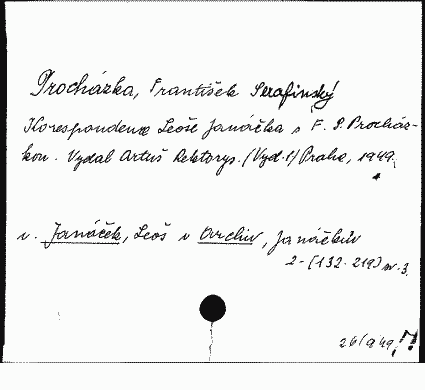 Procházka, František Serafinský
Korespondence Leoše Janáčka s F. S. Procház-
kou. Vydal Artuš Rektorys. (Vyd. 1) Praha, 1949.
v. Janáček, Leoš v Archiv, Janáčkův
2-(132-219) sv. 3.
26/a 49